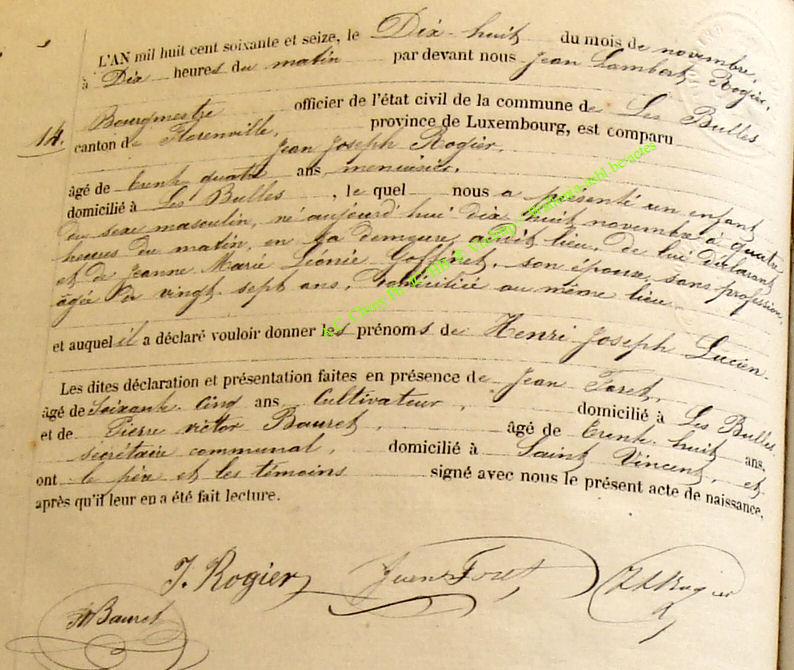 L'AN mil huit cent soixante et seize, le Dix-huit du mois de novembre,
à Dix heures du matin par devant nous Jean Lambert Rogier,
14. Bourgmestre officier de l'état civil de la commune de Les Bulles
canton de Florenville, province de Luxembourg, est comparu
Jean Joseph Rogier,
âgé de trente quatre ans, menuisier,
domicilié à Les Bulles, le quel nous a présenté un enfant
du sexe masculin, né aujourd'hui dix huit novembre à quatre
heures du matin, en sa demeure, audit lieu, de lui déclarant
et de Jeanne Marie Léonie Goffinet, son épouse, sans profession,
âgée de vingt sept ans, domiciliée au même lieu
et auquel il a déclaré vouloir donner les prénoms de Henri Joseph Lucien.
Les dites déclaration et présentation faites en présence de Jean Foret,
âgé de Soixante-cinq ans Cultivateur, domicilié à Les Bulles
et de Pierre victor Bauret, âgé de trente-huit ans.
secrétaire communal, domicilié à Saint Vincent, et
ont le père et les témoins signé avec nous le présent acte de naissance,
après qu'il leur en a été fait lecture.
J. Rogier Jean Foret JLRogier
Bauret